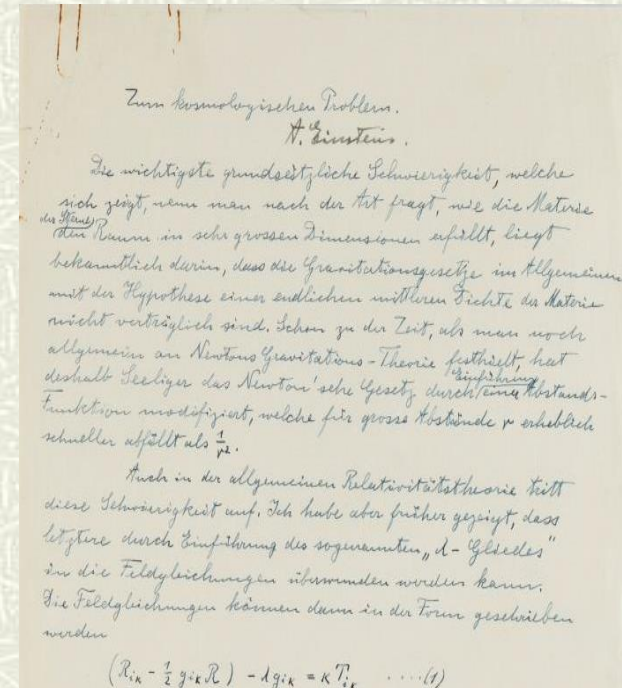 Zum kosmologischen Problem.
A. Einstein.
Die wichtigste grundsätzliche Schwierigkeit, welche
sich zeigt, wenn man nach der Art fragt, wie die Materie
der Sterne
den Raum in sehr grossen Dimensionen erfüllt, liegt
bekanntlich darin, dass die Gravitationsgesetze im Allgemeinen
mit der Hypothese einer endlichen mittleren Dichte der Materie
nicht verträglich sind. Schon zu der Zeit, als man noch
allgemein an Newtons Gravitations-Theorie festhielt, hat
Einführung
deshalb Seeliger das Newton'sche Gesetz durch eine Abstands-
Funktion modifiziert, welche für grosse Abstände r erheblich
schneller abfällt als 1/r².
Auch in der allgemeinen Relativitätstheorie tritt
diese Schwierigkeit auf. Ich habe aber früher gezeigt, dass
letztere durch Einführung des sogenannten „λ-Gliedes"
in die Feldgleichungen überwunden werden kann.
Die Feldgleichungen können dann in der Form geschrieben
werden
(R_ik - 1/2 g_ik R) - λg_ik = κ T_ik .....(1)